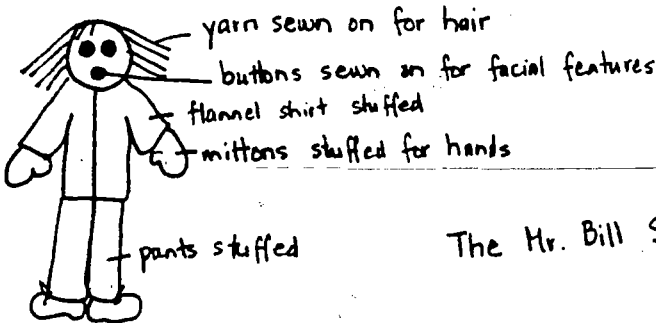 yarn sewn on for hair
buttons sewn on for facial features
flannel shirt stuffed
mittons stuffed for hands
pants stuffed
The Mr. Bill